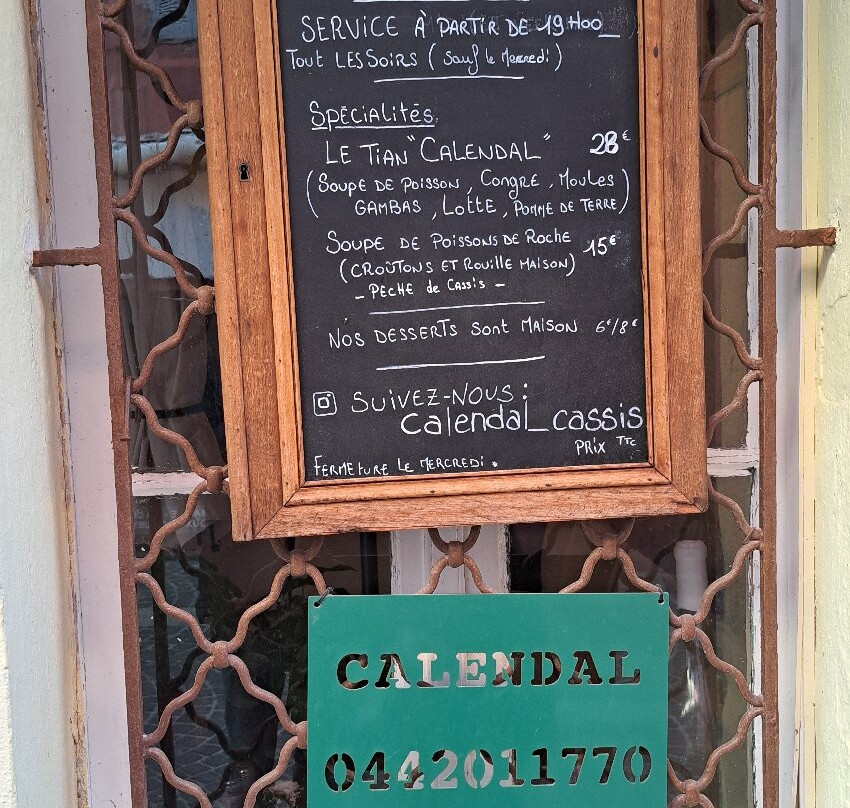 SERVICE À PARTIR DE 19H00_
TOUT LES SOIRS (Sauf le Mercredi)
SPÉCIALITÉS
LE TIAN "CALENDAL" 28€
(SOUPE DE POISSON, CONGRE, MOULES
GAMBAS, LOTTE, POMME DE TERRE)
SOUPE DE POISSONS DE ROCHE 15€
(CROÛTONS ET ROUILLE MAISON)
- PÊCHE de CASSIS -
NOS DESSERTS SONT MAISON 6€/8€
SUIVEZ-NOUS:
calendal_cassis
PRIX TTC
FERMETURE LE MERCREDI.
CALENDAL
0442011770